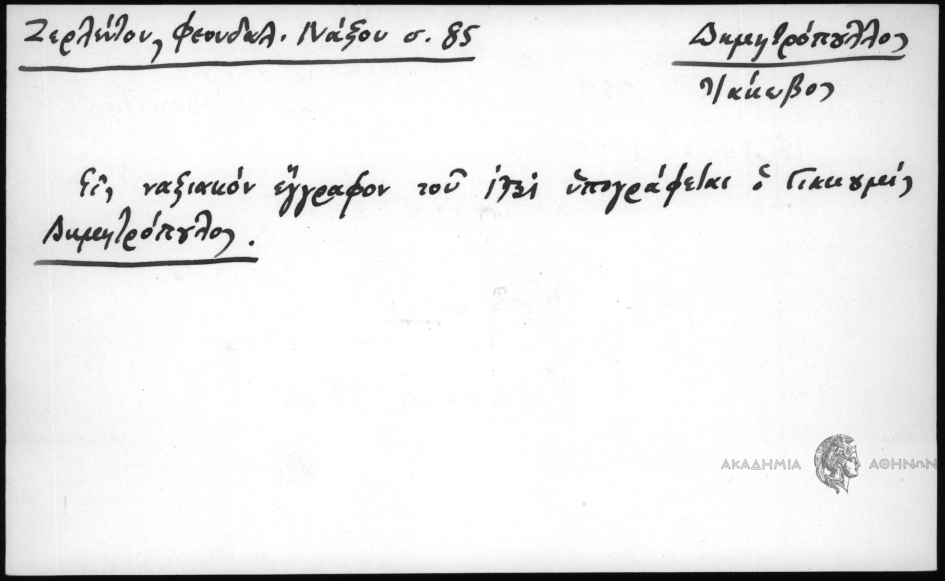 Ζερλέντου, Φεουδαλ. Νάξου σ. 85
Δημητρόπουλλος
Ἰάκωβος
Εἰς ναξιακόν ἔγγραφον τοῦ 1731 ὑπογράφεται ὁ Τζακουμής
Δημητρόπουλος.
ΑΚΑΔΗΜΙΑ ΑΘΗΝΩΝ